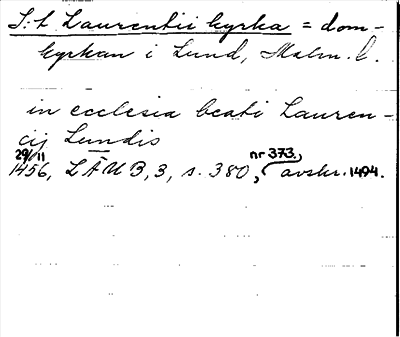 S:t Laurentii kyrka = dom-
kyrkan i Lund, Malm. l.
in ecclesia beati Lauren-
cij Lundis
29/11
1456, LÄUB, 3, s. 380, nr 373, avskr. 1494.